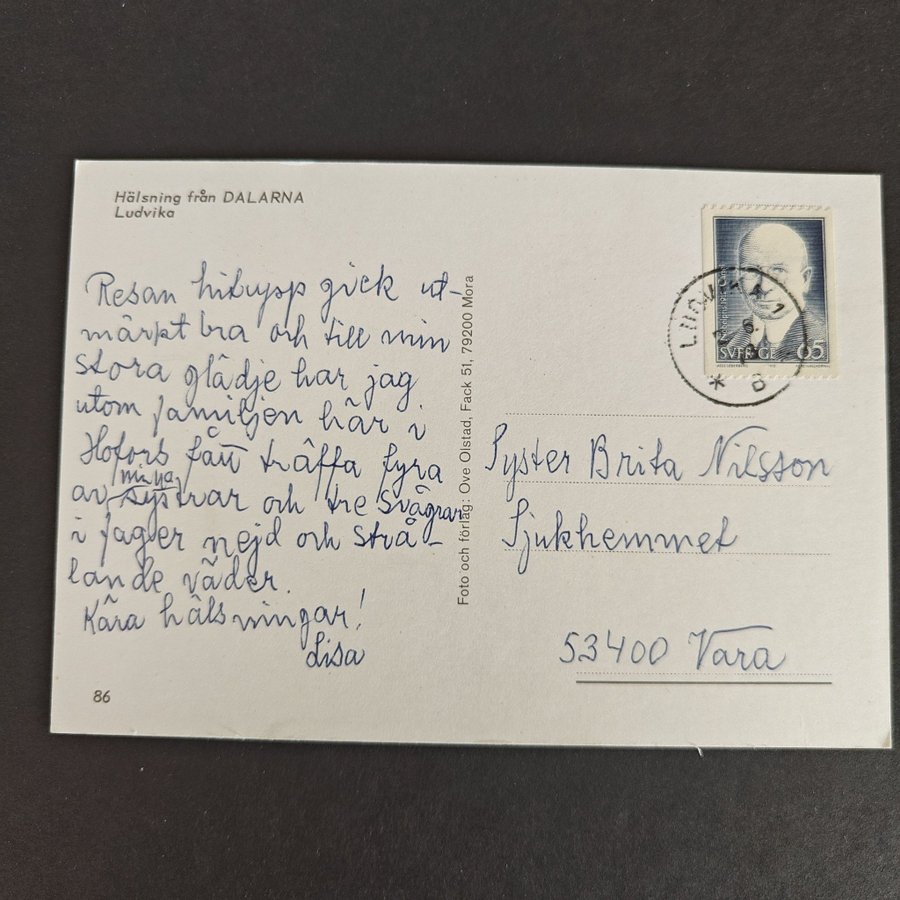 Hälsning från DALARNA
Ludvika
Resan hitupp gick ut-
märkt bra och till min
stora glädje har jag
utom familjen här i
Hofors fått träffa fyra
av mina systrar och tre svägrar
i fager nejd och strå-
lande väder.
Kära hälsningar!
Lisa
86
Foto och förlag: Ove Olstad, Fack 51, 79200 Mora
LUDVIKA 1
SVERIGE 65
Syster Brita Nilsson
Sjukhemmet
53400 Vara